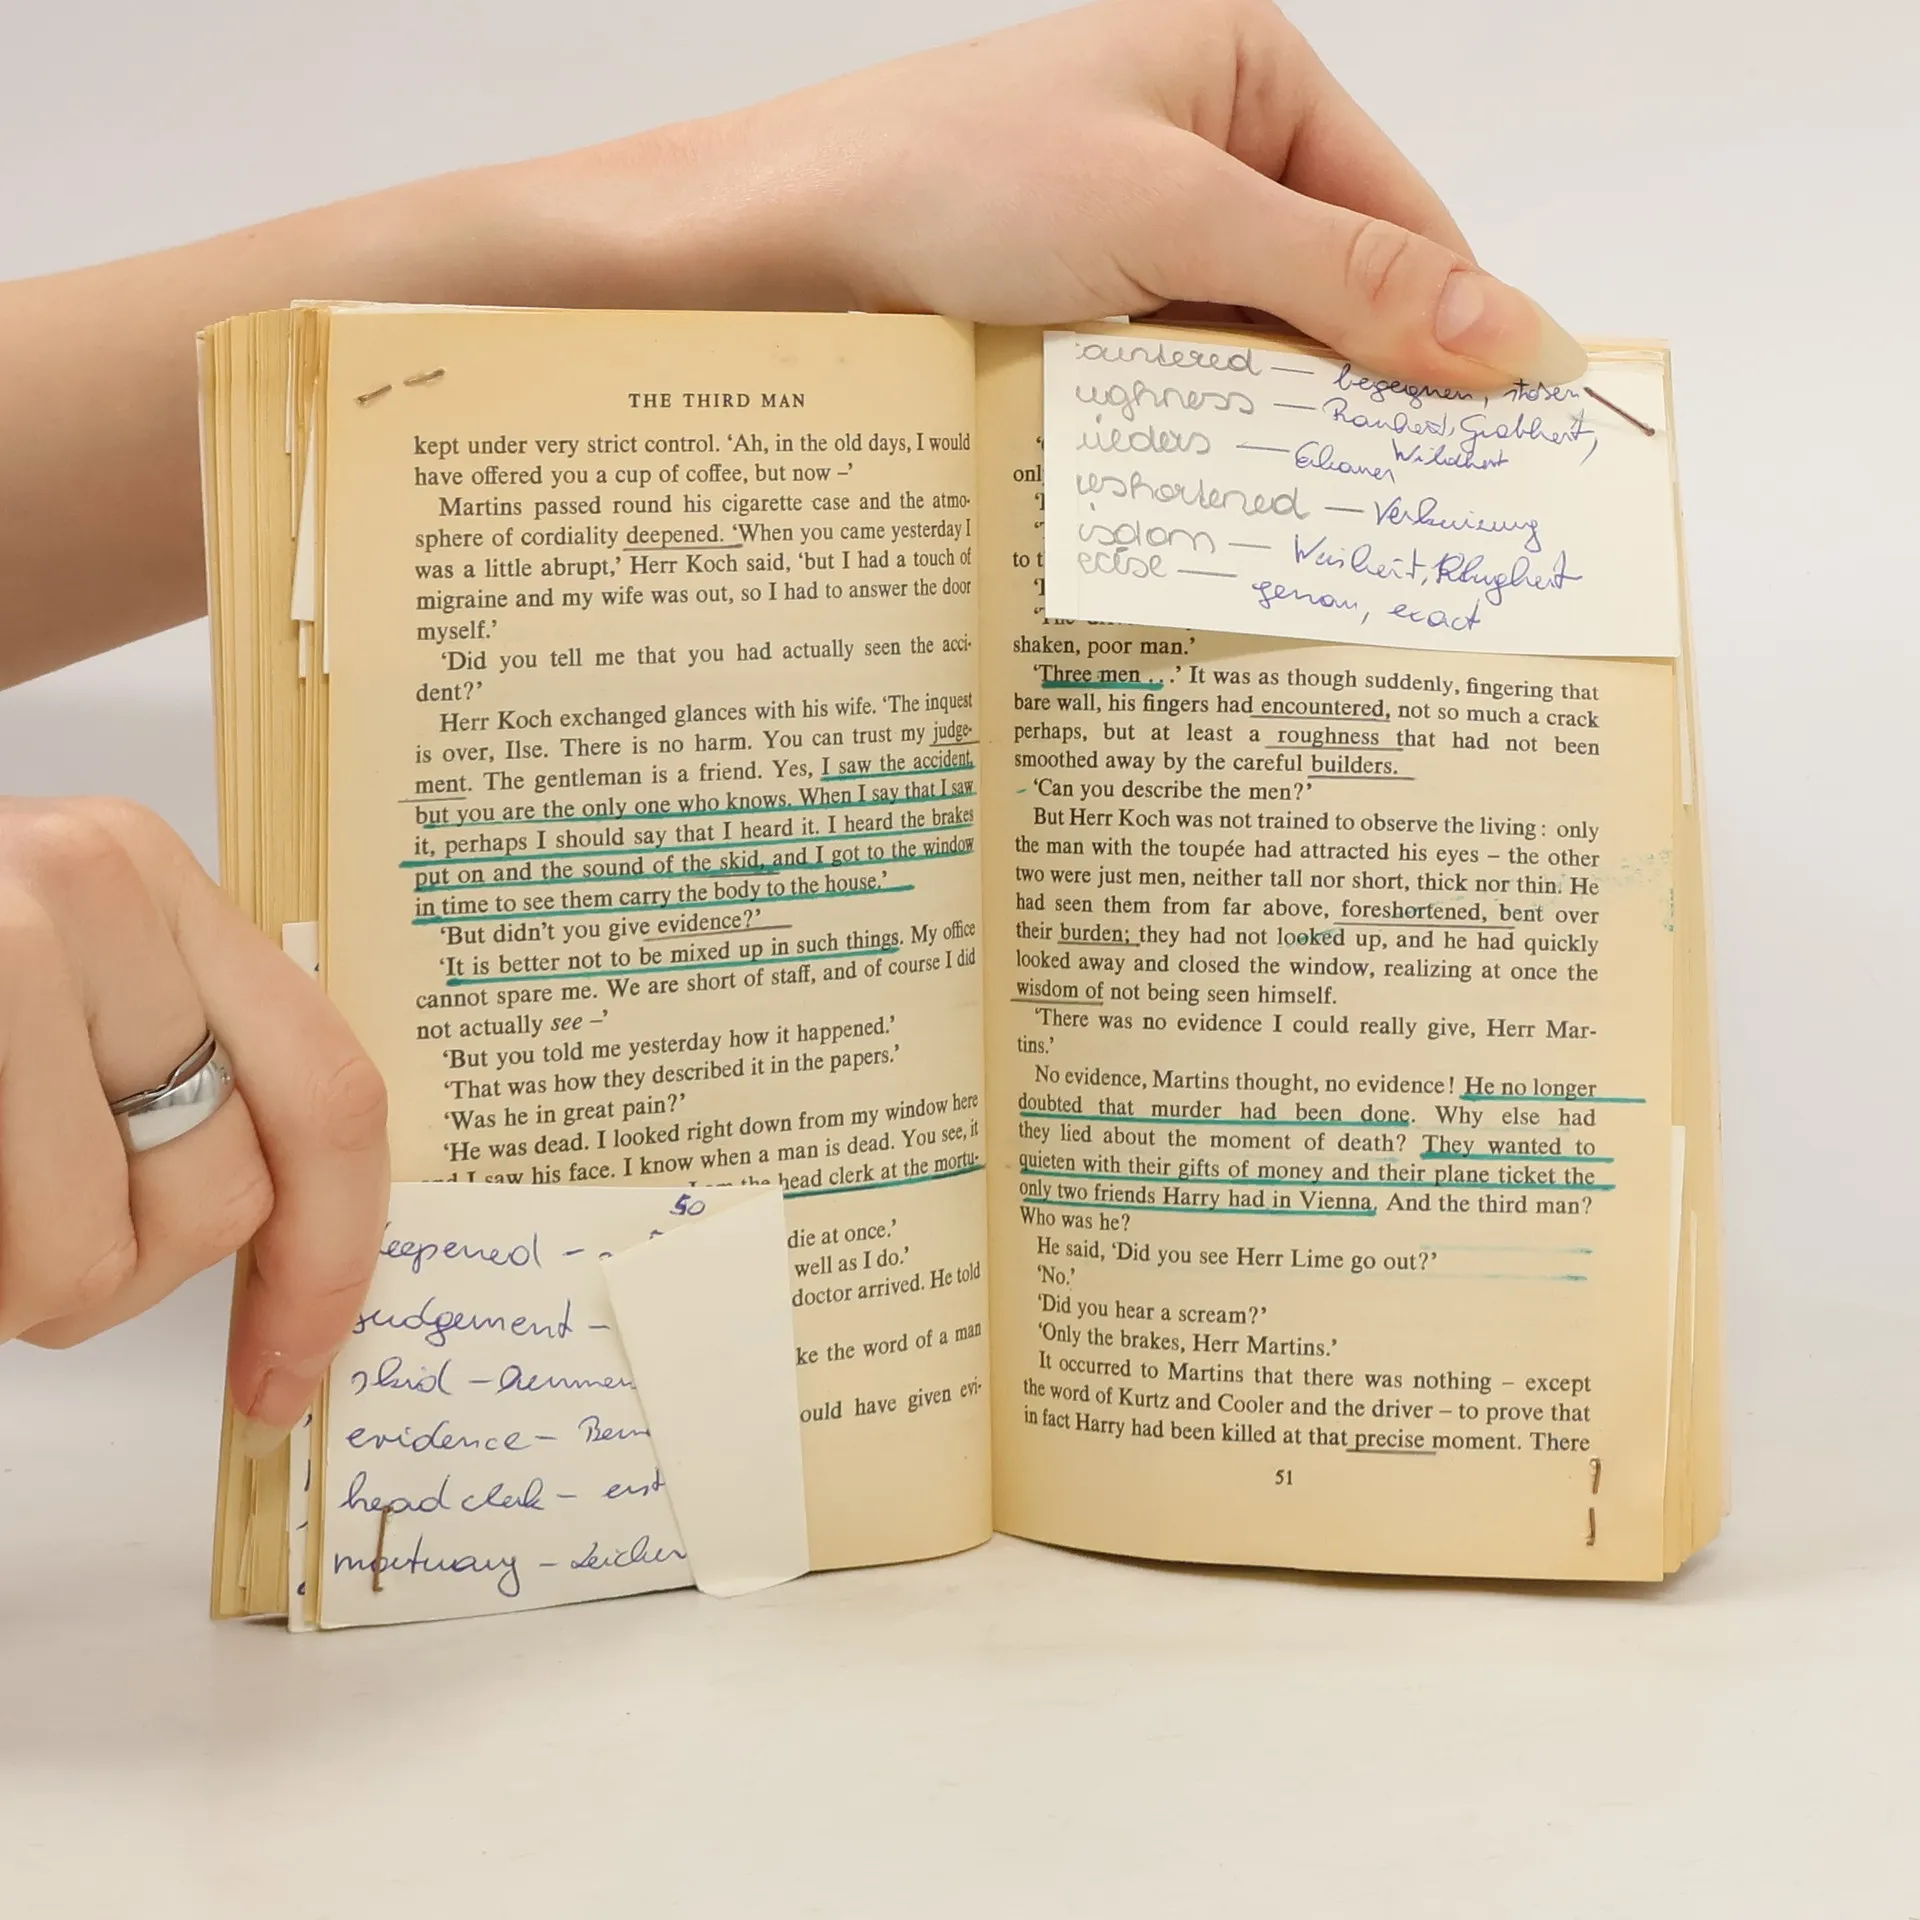 THE THIRD MAN
kept under very strict control. ‘Ah, in the old days, I would
have offered you a cup of coffee, but now –’
Martins passed round his cigarette case and the atmo-
sphere of cordiality deepened. ‘When you came yesterday I
was a little abrupt,’ Herr Koch said, ‘but I had a touch of
migraine and my wife was out, so I had to answer the door
myself.’
‘Did you tell me that you had actually seen the acci-
dent?’
Herr Koch exchanged glances with his wife. ‘The inquest
is over, Ilse. There is no harm. You can trust my judge-
ment. The gentleman is a friend. Yes, I saw the accident,
but you are the only one who knows. When I say that I saw
it, perhaps I should say that I heard it. I heard the brakes
put on and the sound of the skid, and I got to the window
in time to see them carry the body to the house.’
‘But didn’t you give evidence?’
‘It is better not to be mixed up in such things. My office
cannot spare me. We are short of staff, and of course I did
not actually see –’
‘But you told me yesterday how it happened.’
‘That was how they described it in the papers.’
‘Was he in great pain?’
‘He was dead. I looked right down from my window here
I saw his face. I know when a man is dead. You see, it
the head clerk at the mortu-
die at once.’
well as I do.’
doctor arrived. He told
ke the word of a man
ould have given evi-
50
eepened –
judgement –
skid –
evidence –
head clerk – erst
mortuary – Leichen
ountered — begegnen, stosen
ughness — Rauheit, Grobheit,
Wildheit
uilders — Erbauer
reshortened — Verkürzung
isdom — Weisheit, Klugheit
ecise — genau, exact
onl
to t
shaken, poor man.’
‘Three men . . .’ It was as though suddenly, fingering that
bare wall, his fingers had encountered, not so much a crack
perhaps, but at least a roughness that had not been
smoothed away by the careful builders.
‘Can you describe the men?’
But Herr Koch was not trained to observe the living: only
the man with the toupée had attracted his eyes – the other
two were just men, neither tall nor short, thick nor thin. He
had seen them from far above, foreshortened, bent over
their burden; they had not looked up, and he had quickly
looked away and closed the window, realizing at once the
wisdom of not being seen himself.
‘There was no evidence I could really give, Herr Mar-
tins.’
No evidence, Martins thought, no evidence! He no longer
doubted that murder had been done. Why else had
they lied about the moment of death? They wanted to
quieten with their gifts of money and their plane ticket the
only two friends Harry had in Vienna. And the third man?
Who was he?
He said, ‘Did you see Herr Lime go out?’
‘No.’
‘Did you hear a scream?’
‘Only the brakes, Herr Martins.’
It occurred to Martins that there was nothing – except
the word of Kurtz and Cooler and the driver – to prove that
in fact Harry had been killed at that precise moment. There
51